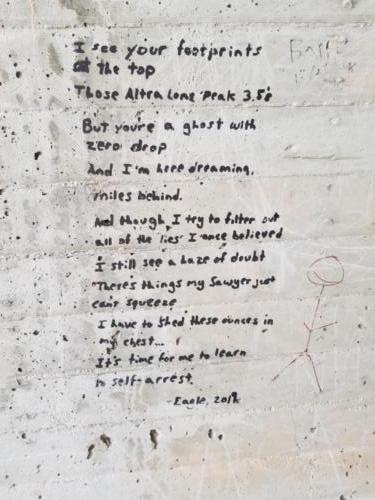 I see your footprints
at the top
Those Altra Lone Peak 3.5's
But you're a ghost with
zero drop
And I'm here dreaming,
miles behind.
And though I try to filter out
all of the lies I once believed
I still see a haze of doubt
"There's things my Sawyer just
can't squeeze
I have to shed these ounces in
my chest...
It's time for me to learn
to self-arrest.
-Eagle, 2018